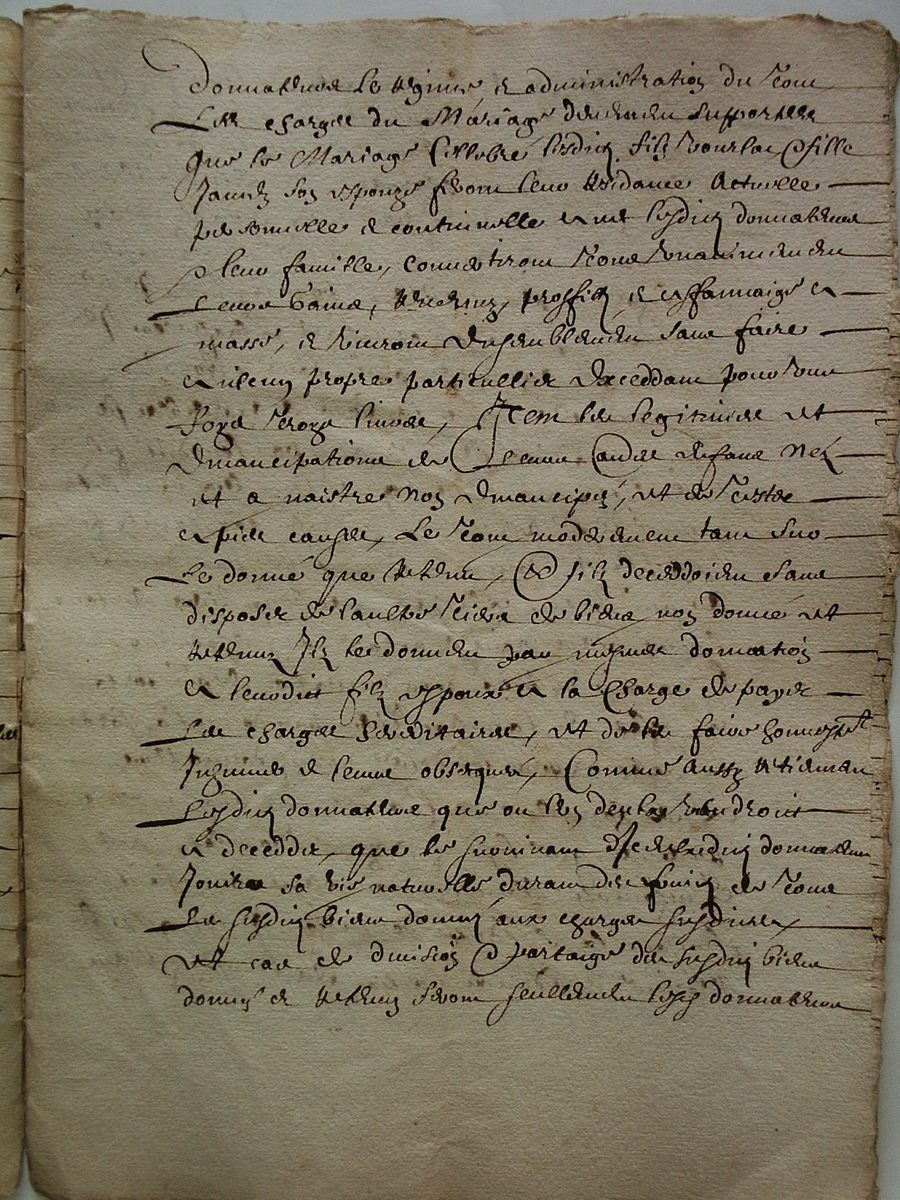 donnateurs le regime et administration du tout
Les charges du Mariage deuement supportees
que le Mariage Cellebré lesditz filz Fille
son espouze feront leur residance Actuelle
personnelle et continuelle avec lesditz donnateurs
et leur famille, convertiront tous unanimement
Leurs Gains, revenuz, proffitz et espargne en
masse, et vivront ensemblement sans faire
aulcun propre particullier exceddant pour une
foys livres, Item les legitimes et
emancipations de Leurs enfans Nez
et a naistre Non emancipés, et de reste
a pies causes, Le tout moderement tant sur
Le donné que retenu, filz deceddoient sans
disposer de laultre tiers de biens non donné et
retenuz Ilz les donnent par mesme donnation
a leurdit filz espoux a la Charge de payer
Les charges hereditaires, et de les faire
Inhumer et leurs obseques, Comme Aussy retiennent
Lesditz donnateurs que ou l'un deulx viendroit
a decedder, que le survivant desditz donnateurs
Jouira sa vie naturelle durant des fruitz de tous
Les susditz biens donnés aux charges susdites
et cas de division et partaige des susditz biens
donnés et retenuz seront seullement lesditz donnateurs